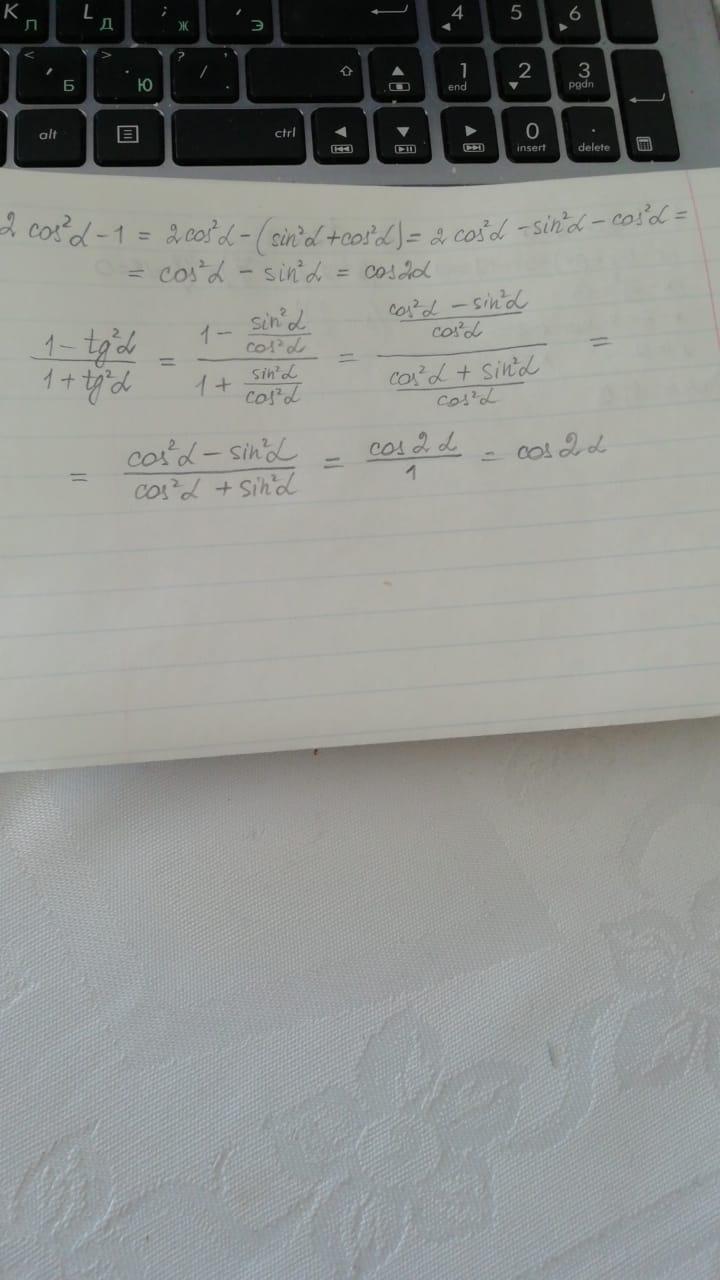 K Л L Д ; Ж ' Э 4 5 6
< , Б > . Ю ? / , . 1 end 2 3 pgdn
alt ctrl 0 insert . delete
2 cos²α - 1 = 2cos²α - (sin²α + cos²α) = 2 cos²α - sin²α - cos²α =
= cos²α - sin²α = cos2α
(1 - tg²α)/(1 + tg²α) = (1 - sin²α/cos²α)/(1 + sin²α/cos²α) = ((cos²α - sin²α)/cos²α)/((cos²α + sin²α)/cos²α) =
= (cos²α - sin²α)/(cos²α + sin²α) = cos2α/1 = cos2α